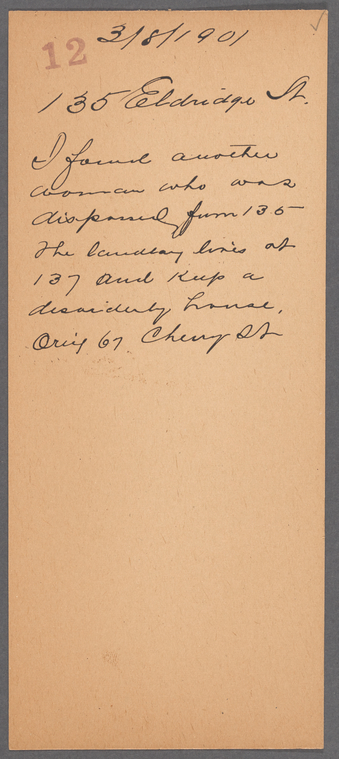 12 3/8/1901
135 Eldridge St.
I found another
woman who was
dispossed from 135
The landlady lives at
137 and Keep a
disorderly house.
67 Cherry St